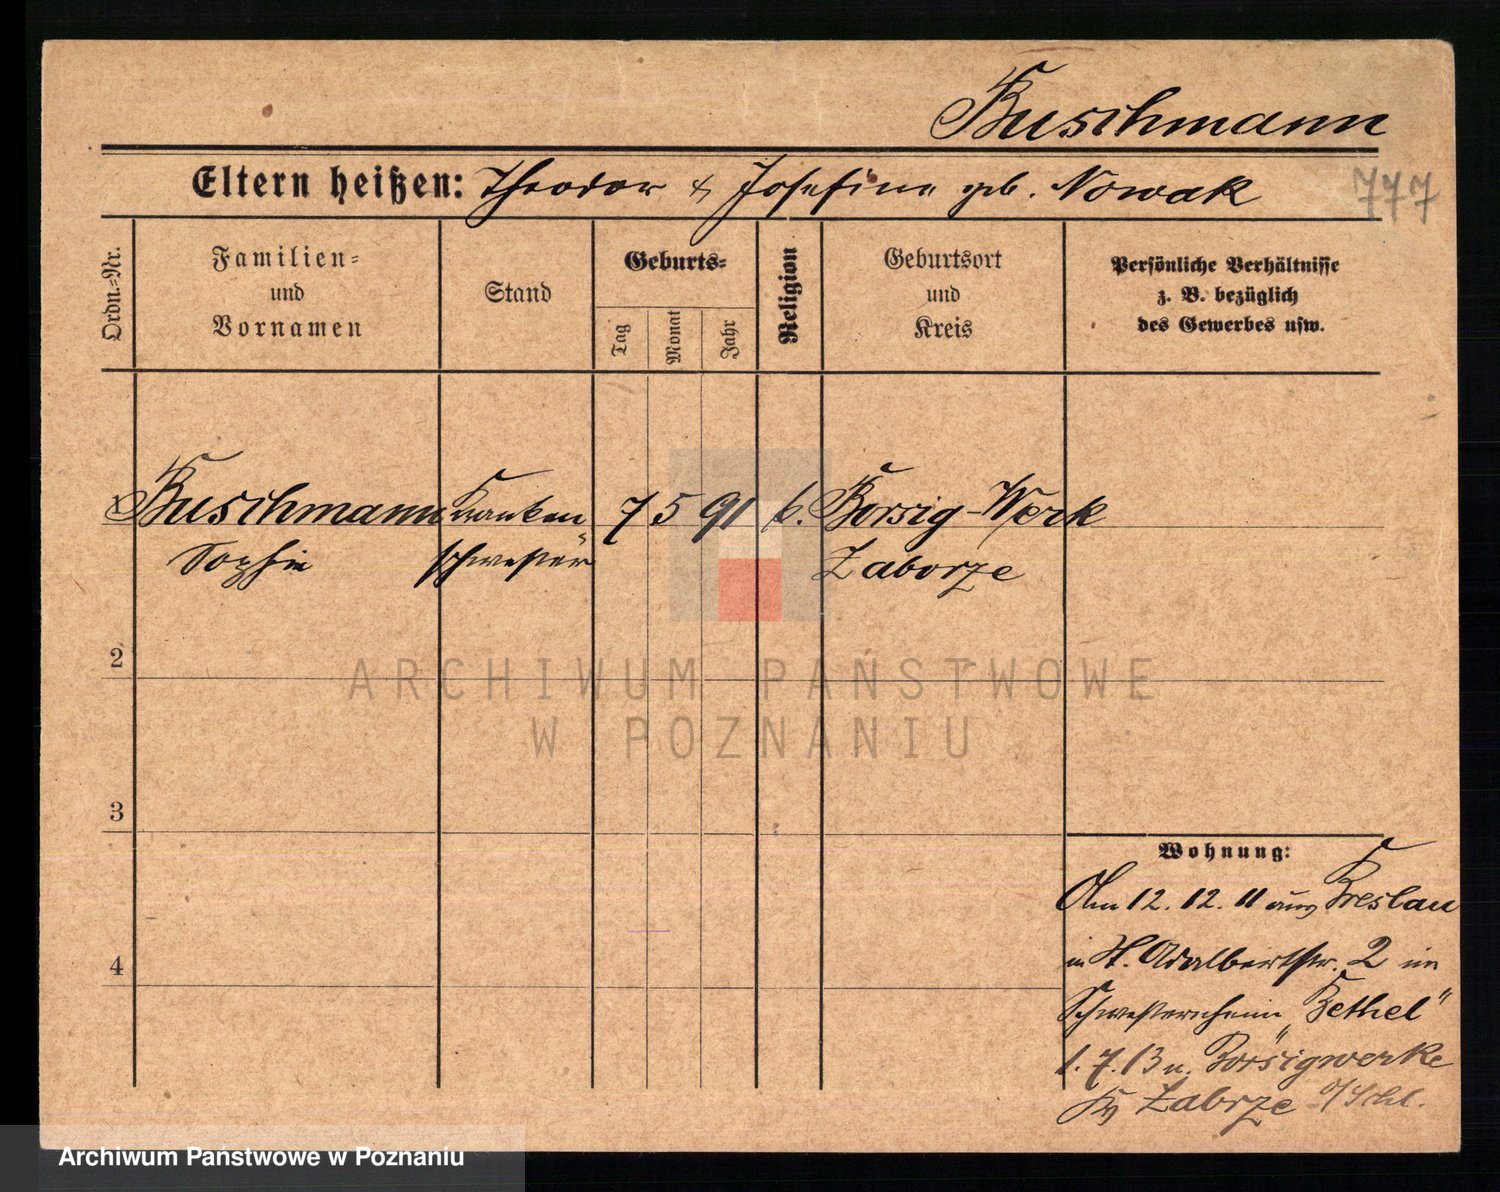 Buschmann
Eltern heißen: Theodor & Josefine geb. Nowak
777
Ordn.-Nr.
Familien-
und
Vornamen
Stand
Geburts-
Tag
Monat
Jahr
Religion
Geburtsort
und
Kreis
Persönliche Verhältnisse
z. B. bezüglich
des Gewerbes usw.
Buschmann Kranken 7 5 91 k. Borsig-Werk
Sophie schwester Zaborze
2
ARCHIWUM PAŃSTWOWE
W POZNANIU
3
Wohnung:
Am 12. 12. 11 aus Breslau
in St. Adalbertstr. 2 im
4
Schwesternheim "Bethel"
1. 7. 13 n. Borsigwerke
Zabrze o/Schl.
Archiwum Państwowe w Poznaniu